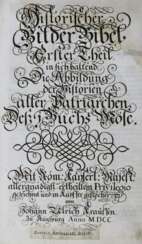 Historischer
Bilder Bibel
Erster Theil
in sich haltend
Die Abbildung
der Historien
alter Patriarchen
Deß Buchs Mose.
Mit Röm. Kayserl. Majest.
allergnädigst ertheiltem Privilegio
gezeichnet und in Kupffer gestochen
von
Johann Ulrich Kraussen
in Augspurg Anno MDCC